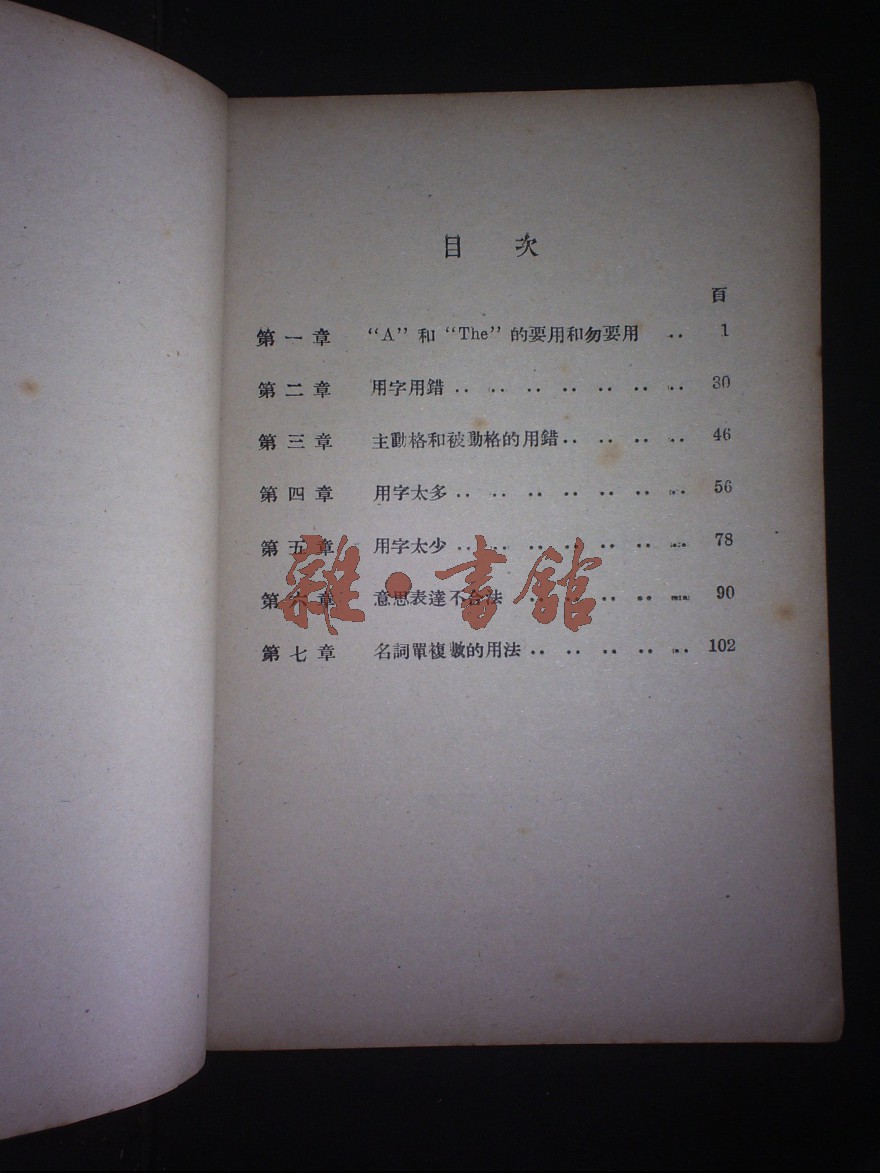 目次
頁
第一章 “A” 和 “The” 的要用和勿要用 .. 1
第二章 用字用錯 .. .. .. .. .. .. .. 30
第三章 主動格和被動格的用錯 .. .. .. .. 46
第四章 用字太多 .. .. .. .. .. .. .. 56
第五章 用字太少 .. .. .. .. .. .. .. 78
第六章 意思表達不合法 .. .. .. .. .. 90
第七章 名詞單複數的用法 .. .. .. .. .. 102
雜·書館